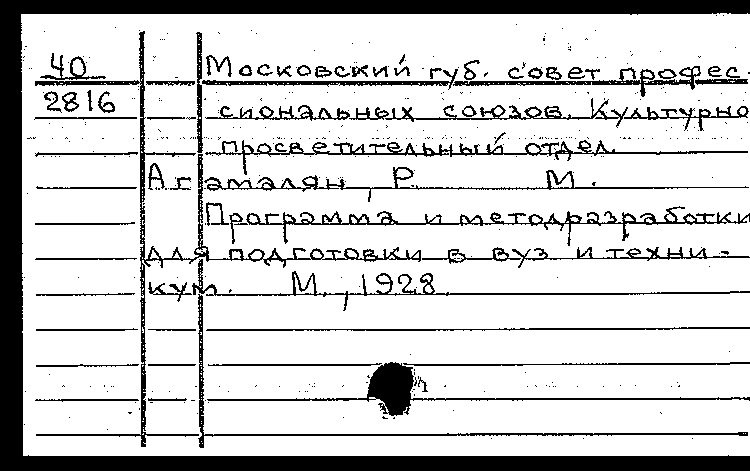 40
Московский губ. совет профес-
2816
сиональных союзов. Культурно
просветительный отдел.
Агамалян, Р. М.
Программа и методразработки
для подготовки в вуз и техни-
кум. М., 1928.